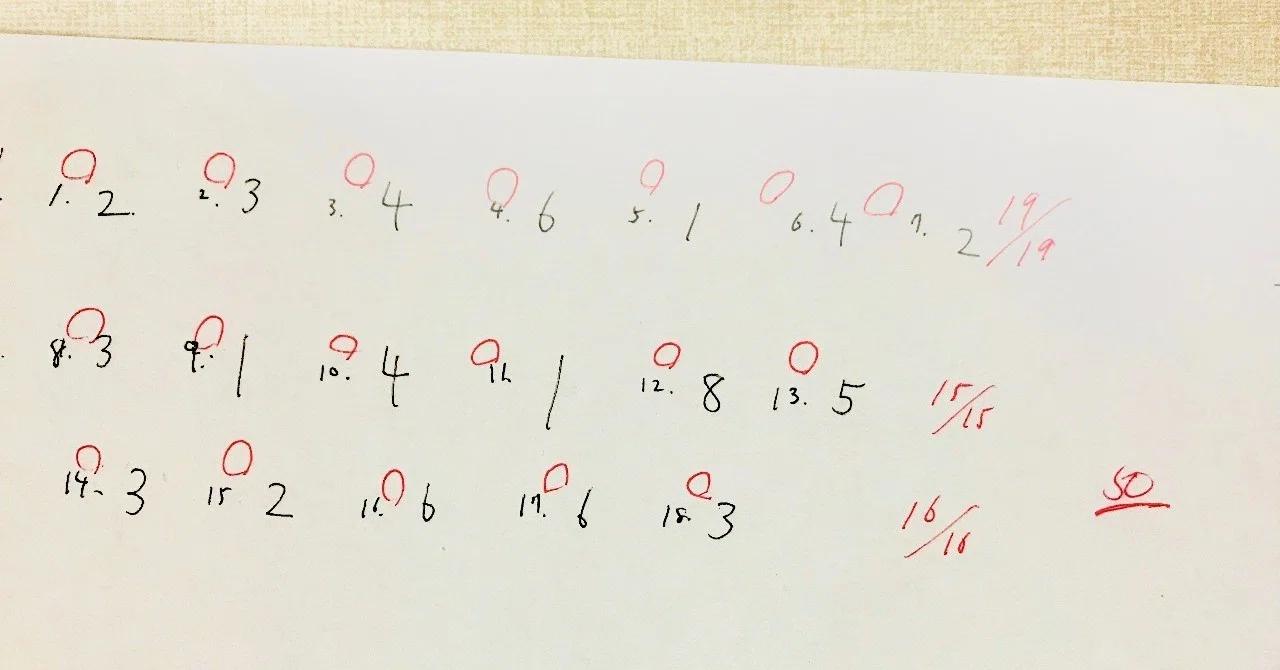 1. 2. 2. 3 3. 4 4. 6 5. 1 6. 4 7. 2 19/19
8. 3 9. 1 10. 4 11. 1 12. 8 13. 5 15/15
14. 3 15 2 16. 6 17. 6 18. 3 16/16
50